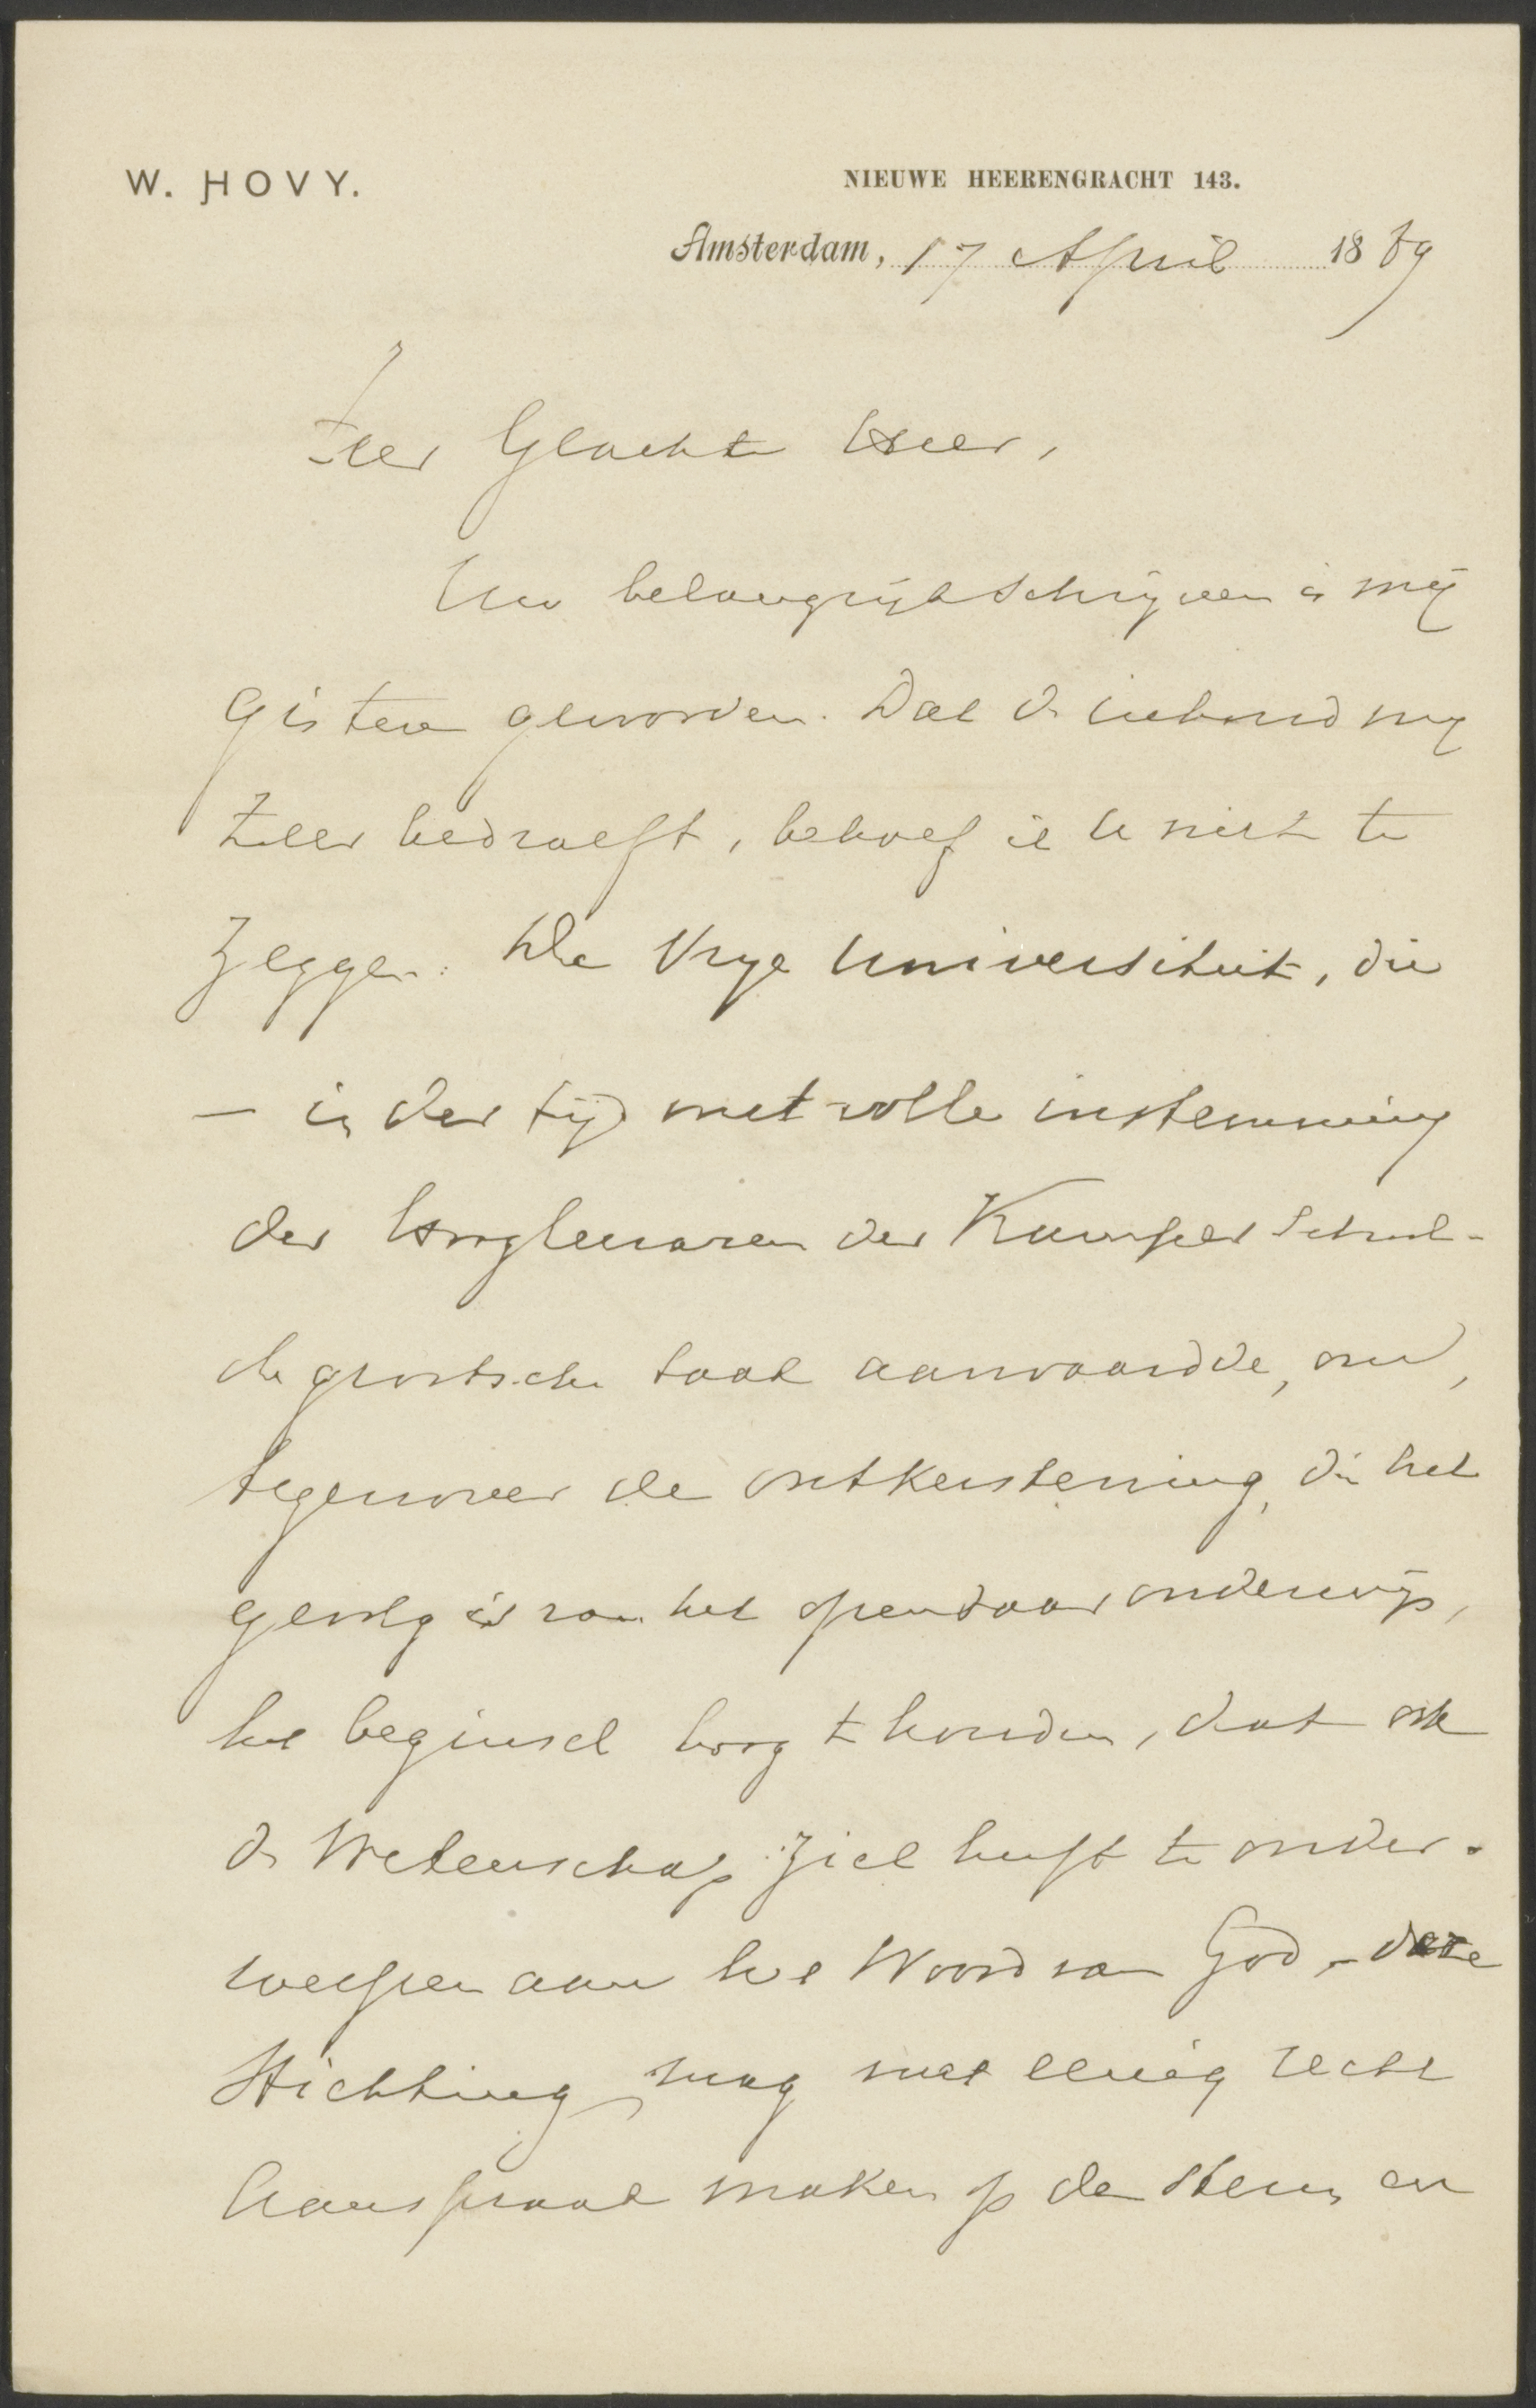 W. HOVY.
NIEUWE HEERENGRACHT 143.
Amsterdam, 17 April 1889
Zeer Geachte Heer,
Uw belangrijk schrijven is mij
gisteren geworden. Dat de inhoud mij
zeer bedroeft, behoef ik U niet te
zeggen. De Vrije Universiteit, die
— in der tijd met volle instemming
der Hoogleeraren der Kamper School -
de grootsche taak aanvaardde, om,
tegenover de ontkerstening, die het
gevolg is van het openbaar onderwijs,
het beginsel hoog te houden, dat ook
de Wetenschap zich heeft te onder-
werpen aan het Woord van God, - deze
Stichting mag met eenig recht
aanspraak maken op de steun en